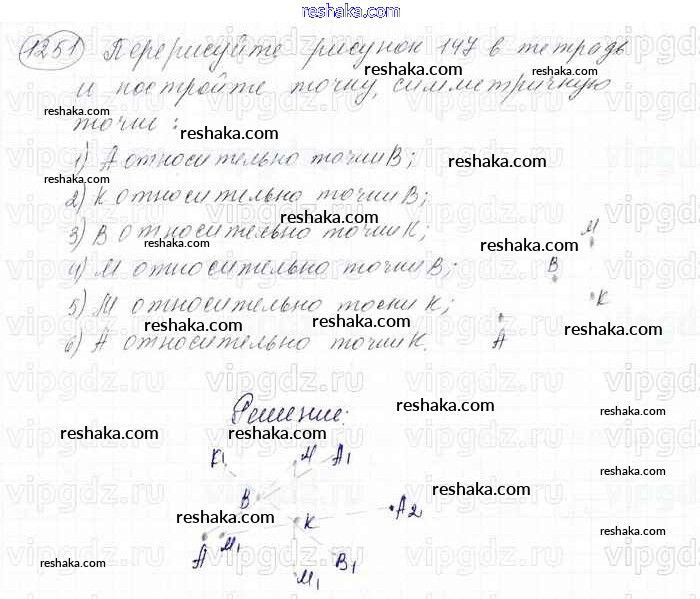 reshaka.com
1251 Перерисуйте рисунок 147 в тетрадь
и постройте точку, симметричную
точки:
1) А относительно точки В;
2) К относительно точки В;
3) В относительно точки К;
4) М относительно точки В;
5) М относительно точки К;
6) А относительно точки К.
М
В
К
А
Решение:
К1 М А1
В
К А2
А М1 В1
М1